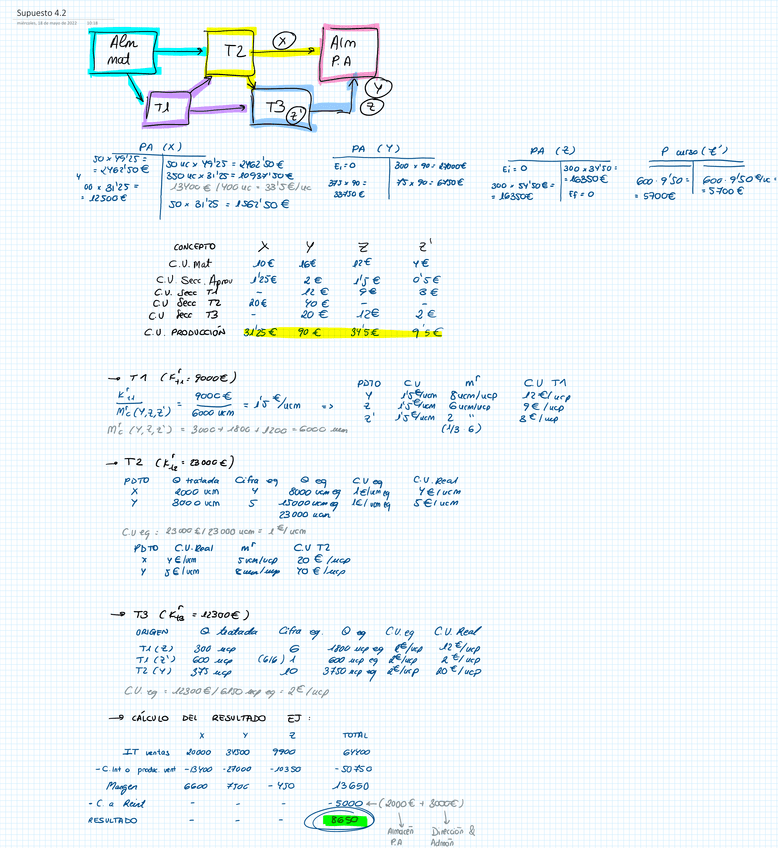 Supuesto 4.2
miércoles, 18 de mayo de 2022 20:18
Alm mat
T2
X
Alm P.A
T1
T3
Z'
Y
Z
PA (X)
50 x 49'25 = = 2462'50€
50 uc x 49'25 = 2462'50€
350 uc x 31'25 = 10937'50€
400 x 31'25 = = 12500€
13400€ / 400 uc = 33'5€/uc
50 x 31'25 = 1562'50€
PA (Y)
Ei = 0
300 x 90 = 27000€
375 x 90 = 33750€
75 x 90 = 6750€
PA (Z)
Ei = 0
300 x 34'50 = = 10350€
300 x 34'50 = = 10350€
Ef = 0
P curso (Z')
600 · 9'50 = = 5700€
600 · 9'50€/uc = = 5700€
CONCEPTO X Y Z Z'
C.U. Mat 10€ 16€ 12€ 4€
C.U. Secc. Aprov 1'25€ 2€ 1'5€ 0'5€
C.U. Secc T1 - 12€ 9€ 3€
C.U Secc T2 20€ 40€ - -
C.U Secc T3 - 20€ 12€ 2€
C.U. PRODUCCIÓN 31'25€ 90€ 34'5€ 9'5€
→ T1 (K r T1 = 9000€)
K r T1 / M r c (Y,Z,Z') = 9000€ / 6000 ucm = 1'5€/ucm =>
M r c (Y,Z,Z') = 3000 + 1800 + 1200 = 6000 ucm
PDTO CU m r CU T1
Y 1'5€/ucm 8 ucm/ucp 12€/ucp
Z 1'5€/ucm 6 ucm/ucp 9€/ucp
Z' 1'5€/ucm 2 " 3€/ucp
(1/3 6)
→ T2 (K r T2 = 23000€)
PDTO Q tratada Cifra eq Q eq CU eq C.U. Real
X 2000 ucm 4 8000 ucm eq 1€/ucm eq 4€/ucm
Y 3000 ucm 5 15000 ucm eq 1€/ucm eq 5€/ucm
23000 ucm
C.U eq = 23000€/23000 ucm = 1€/ucm
PDTO C.U.Real m r C.U T2
X 4€/ucm 5 ucm/ucp 20€/ucp
Y 5€/ucm 8 ucm/ucp 40€/ucp
→ T3 (K r T3 = 12300€)
ORIGEN Q tratada Cifra eq. Q eq C.U. eq C.U. Real
T1 (Z) 300 ucp 6 1800 ucp eq 2€/ucp 12€/ucp
T1 (Z') 600 ucp (6/6) 1 600 ucp eq 2€/ucp 2€/ucp
T2 (Y) 375 ucp 10 3750 ucp eq 2€/ucp 20€/ucp
C.U. eq = 12300€/6150 ucp eq = 2€/ucp
→ CÁLCULO DEL RESULTADO EJ :
X Y Z TOTAL
IT ventas 20000 34500 9900 64400
- C.Int a produc. vent -13400 -27000 -10350 -50750
Margen 6600 7500 -450 13650
- C. a Reint - - - -5000 ← (2000€ + 3000€)
RESULTADO - - - 8650
Almacén P.A
Dirección & Admón